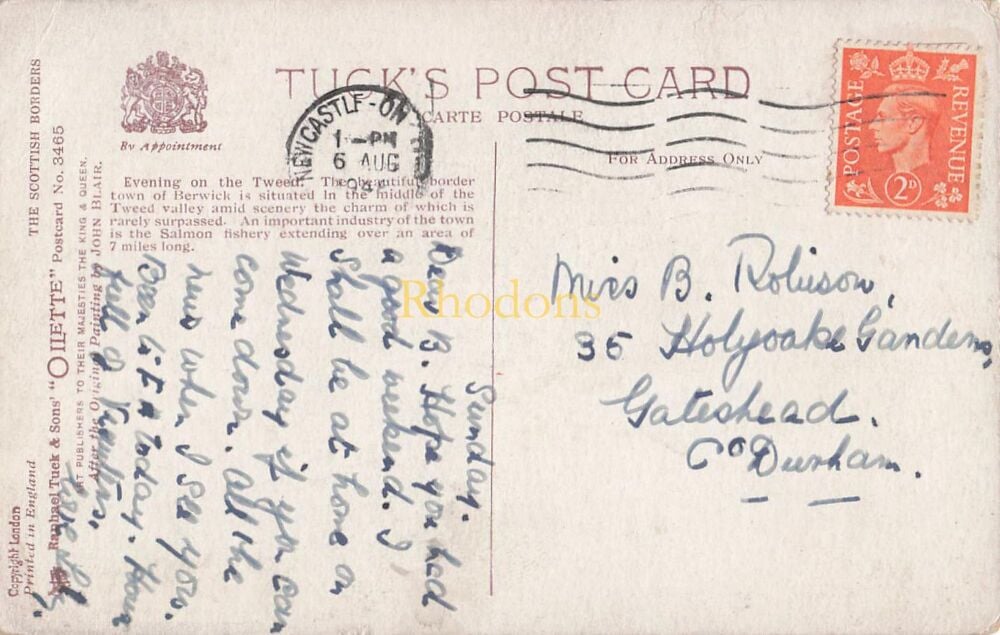 TUCK'S POST CARD
CARTE POSTALE
By Appointment
FOR ADDRESS ONLY
NEWCASTLE-ON
1-PM
6 AUG
POSTAGE
REVENUE
2D
Evening on the Tweed. The beautiful border
town of Berwick is situated in the middle of the
Tweed valley amid scenery the charm of which is
rarely surpassed. An important industry of the town
is the Salmon fishery extending over an area of
7 miles long.
THE SCOTTISH BORDERS
Raphael Tuck & Sons' "OILETTE" Postcard No. 3465
ART PUBLISHERS TO THEIR MAJESTIES THE KING & QUEEN.
After the Original Painting by JOHN BLAIR.
Copyright London
Printed in England
Sunday.
Dear B. Hope you had
a good weekend. I
Shall be at home on
Wednesday if you can
come down. All the
news when I see you.
Been to today.
full
Love
Miss B. Robinson,
36 Holyoake Gardens,
Gateshead.
Co Durham.
Rhodons